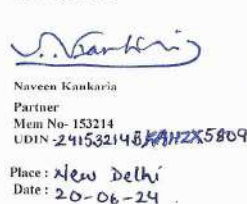 Naveen Kankaria
Partner
Mem No- 153214
UDIN -24153214BKAHZX5809
Place : New Delhi
Date : 20-06-24